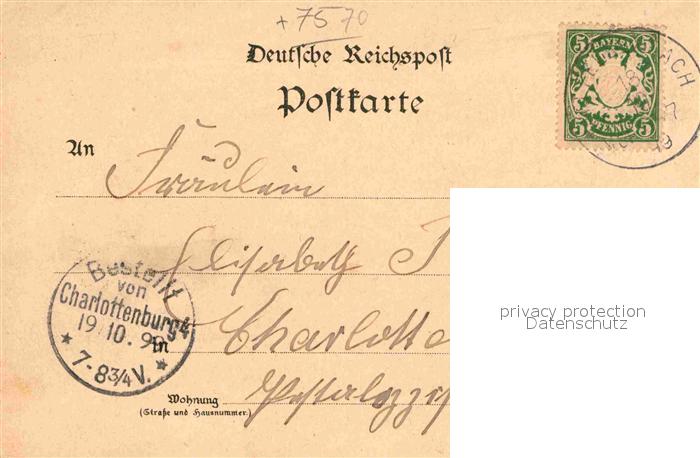 + 7570
Deutsche Reichspost
Postkarte
5 BAYERN 5
5 PFENNIG 5
An
Fräulein
Elisabeth
Bestellt
von
Charlottenburg 4
19/10. 9
7-8 3/4 V.
Charlotte
in
Pestalozzi
Wohnung
(Straße und Hausnummer.)
privacy protection
Datenschutz